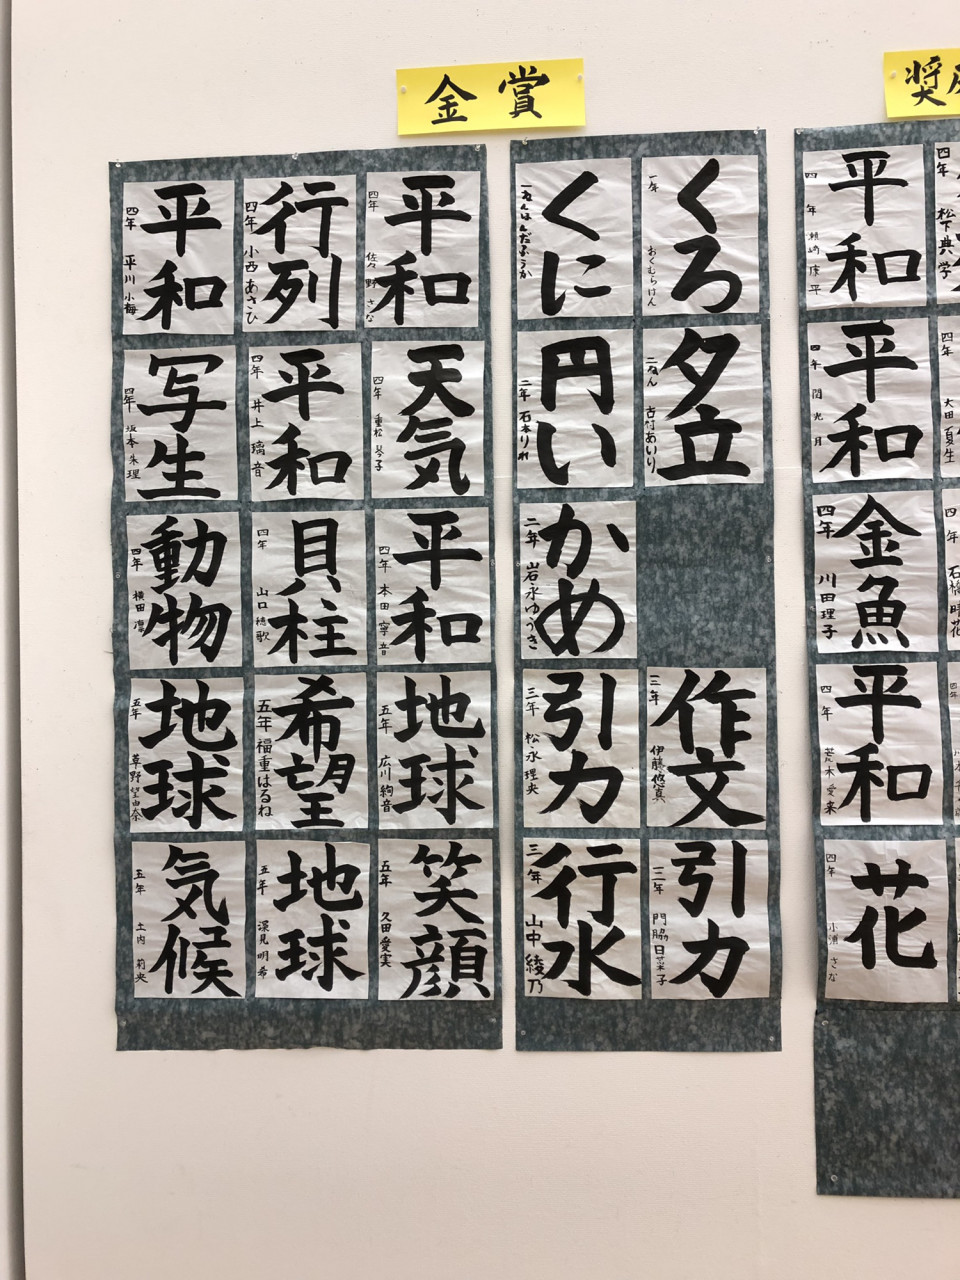 金賞
奨
くろ
一年
おくむらけん
くに
一ねん
ほんだふうか
夕立
二ねん
吉村あいり
円い
二年
石本りれ
かめ
二年
岩永ゆうき
作文
三年
伊藤悠真
引力
三年
松永理央
引力
三年
門脇日菜子
行水
三年
山中綾乃
平和
四年
佐々野さな
行列
四年
小西あさひ
平和
四年
平川小梅
天気
四年
重松琴子
平和
四年
井上璃音
写生
四年
坂本朱理
平和
四年
本田寧音
貝柱
四年
山口穂歌
動物
四年
横田凛
地球
五年
広川絢音
希望
五年
福重はるね
地球
五年
草野望由奈
笑顔
五年
久田愛実
地球
五年
深見明希
気候
五年
土内莉央
四年
松下典学
平和
四年
康平
四年
太田夏生
平和
四年
関光月
四年
石橋晴花
金魚
四年
川田理子
四年
平和
四年
荒木愛来
花
四年
小濱さな